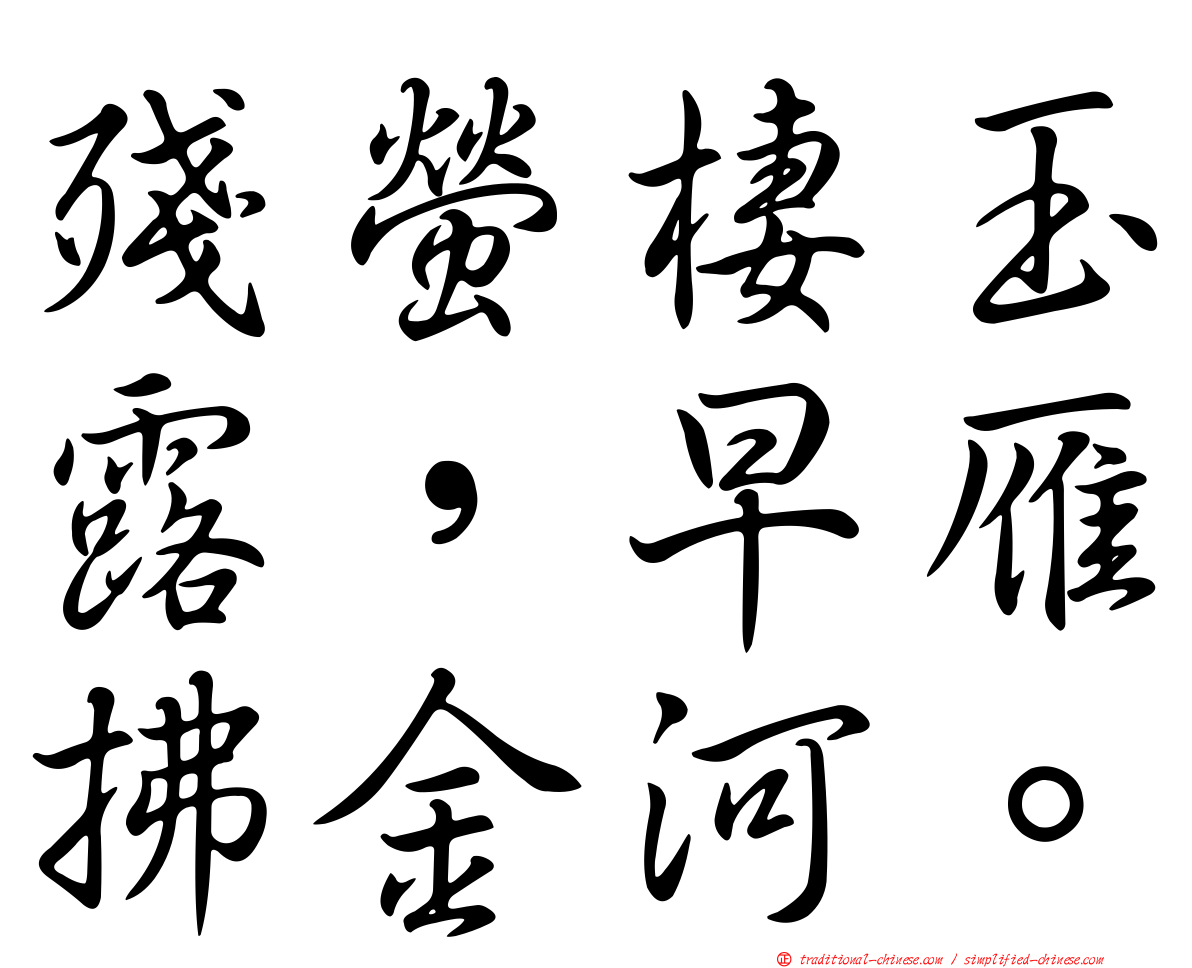 殘螢棲玉
露，早雁
拂金河。
㊣ traditional-chinese.com / simplified-chinese.com